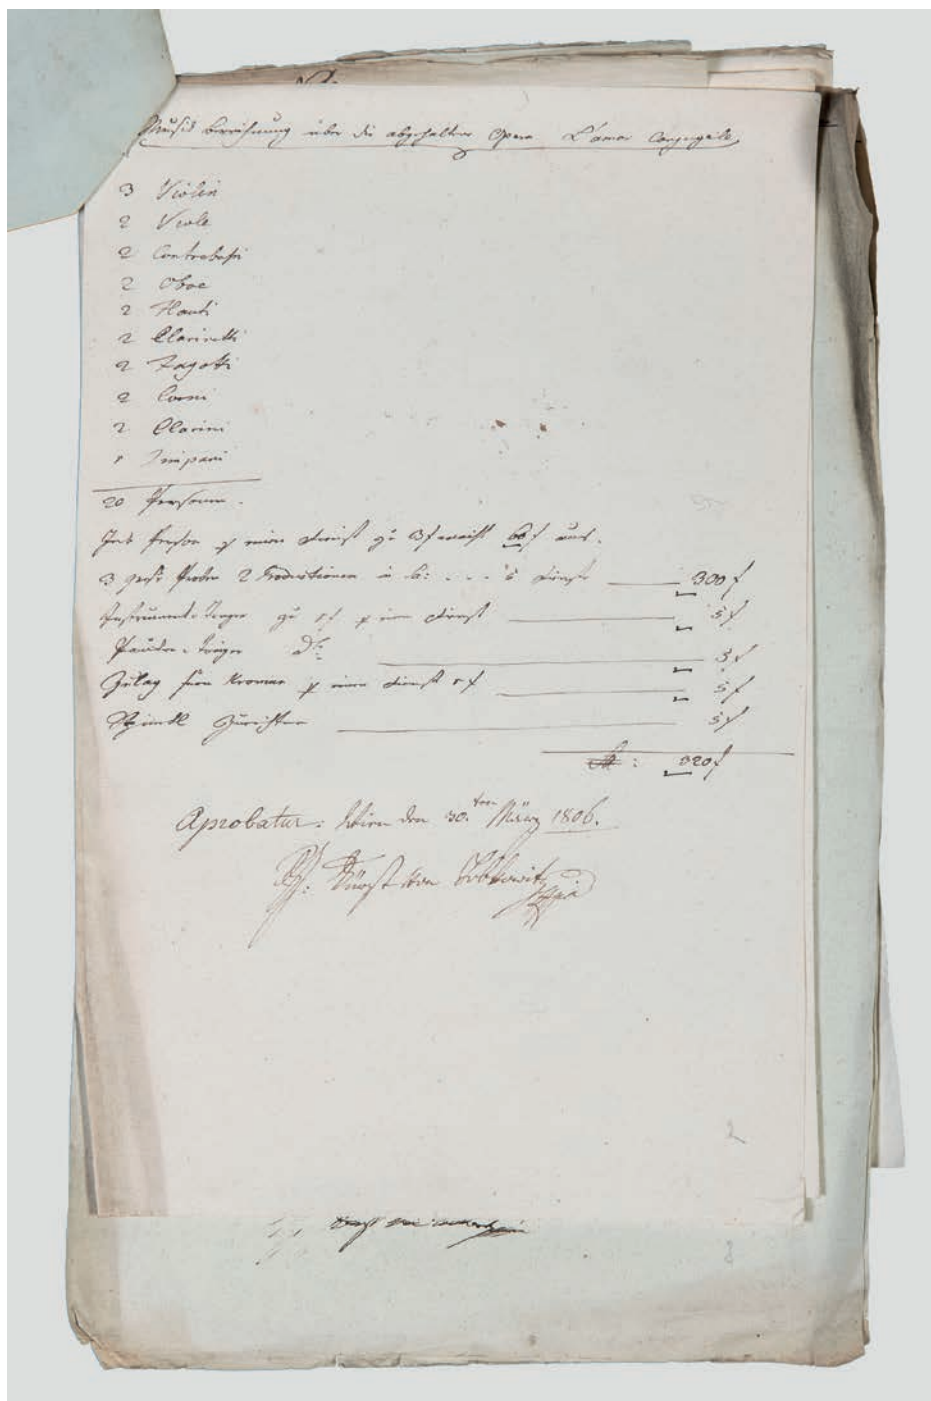 Musik berechnung über die abgehaltene Opera L'amor Conjugale
3 Violin
2 Viole
2 Contrabassi
2 Oboe
2 Flauti
2 Clarinetti
2 Fagotti
2 Corni
2 Clarini
1 Timpani
20 Personen.
Jede Person pr einen Dienst zu 3 f macht 60 f aus.
3 Proben 2 Productionen 5 Dienste 300 f
Instrumenten Trager zu 1 f pr einen Dienst 5 f
Pauken Trager 5 f
Zulag pr einen Dienst 1 f 5 f
Zurichten 5 f
320 f
Aprobatur: Wien den 30.ten März 1806.
Fürst von Lobkowitz
2